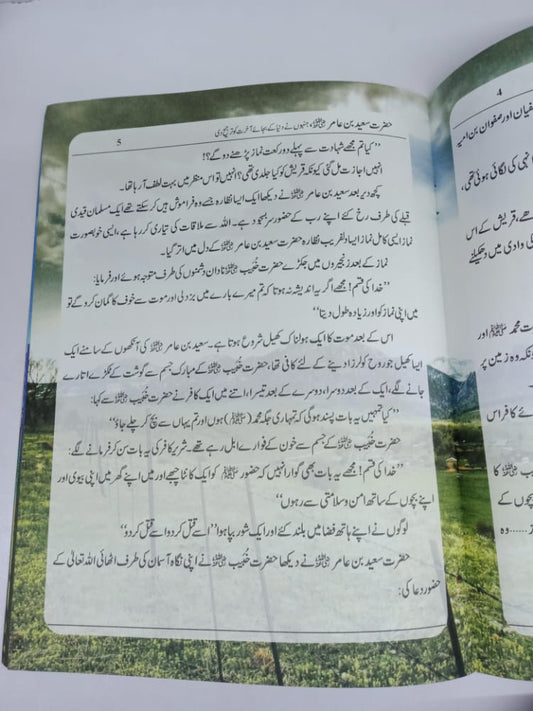 حضرت سعید بن عامر ؓ، جنہوں نے دنیا کے بجائے آخرت کو ترجیح دی
5
’’کیا تم مجھے شہادت سے پہلے دو رکعت نماز پڑھنے دو گے؟!
انہیں اجازت مل گئی کیونکہ قریش کو کیا جلدی تھی؟ انہیں تو اس منظر میں بہت لطف آ رہا تھا۔
کچھ دیر بعد سعید بن عامر ؓ نے دیکھا ایک ایسا نظارہ جسے وہ فراموش نہیں کر سکتے تھے ایک مسلمان قیدی
قبلے کی طرف رخ کئے اپنے رب کے حضور سربسجود ہے۔ اللہ سے ملاقات کی تیاری کر رہا ہے، ایسی خوبصورت
نماز ایسی کامل نماز ایسا دلفریب نظارہ حضرت سعید بن عامر ؓ کے دل میں اتر گیا۔
نماز کے بعد زنجیروں میں جکڑے حضرت خُبَیب ؓ نادان دشمنوں کی طرف متوجہ ہوئے اور فرمایا:
’’خدا کی قسم! مجھے اگر یہ اندیشہ نہ ہوتا کہ تم میرے بارے میں بزدلی اور موت سے خوف کا گمان کرو گے تو
میں اپنی نماز کو اور زیادہ طول دیتا‘‘
اس کے بعد موت کا ایک ہولناک کھیل شروع ہوتا ہے۔ سعید بن عامر ؓ کی آنکھوں کے سامنے ایک
ایسا کھیل جو روح کو لرزا دینے کے لئے کافی تھا، حضرت خُبَیب ؓ کے مبارک جسم سے گوشت کے ٹکڑے اتارے
جانے لگے، ایک کے بعد دوسرا، دوسرے کے بعد تیسرا، اتنے میں ایک کافر نے حضرت خُبَیب ؓ سے کہا:
’’کیا تمہیں یہ بات پسند ہو گی کہ تمہاری جگہ محمد (ﷺ) ہوں اور تم یہاں سے بچ کر چلے جاؤ‘‘
حضرت خُبَیب ؓ کے جسم سے خون کے فوارے ابل رہے تھے۔ شریر کافر کی یہ بات سن کر فرمانے لگے:
’’خدا کی قسم! مجھے یہ بات بھی گوارا نہیں کہ حضور ﷺ کو ایک کانٹا چبھے اور میں اپنے گھر میں اپنی بیوی اور
اپنے بچوں کے ساتھ امن و سلامتی سے رہوں‘‘
لوگوں نے اپنے ہاتھ فضا میں بلند کئے اور ایک شور بپا ہوا ’’اسے قتل کر دو اسے قتل کر دو‘‘
حضرت سعید بن عامر ؓ نے دیکھا حضرت خُبَیب ؓ نے اپنی نگاہ آسمان کی طرف اٹھائی اللہ تعالیٰ کے
حضور دعا کی:
4
سفیان اور صفوان بن امیہ
نبی کی لگائی ہوئی تھی،
تھے، قریش کے اس
کی وادی میں دھکیلنے
ت محمد ﷺ اور
ونکہ وہ زمین پر
ئے کا فراس
ب ؓ کا
بچوں کے
ز......وہ